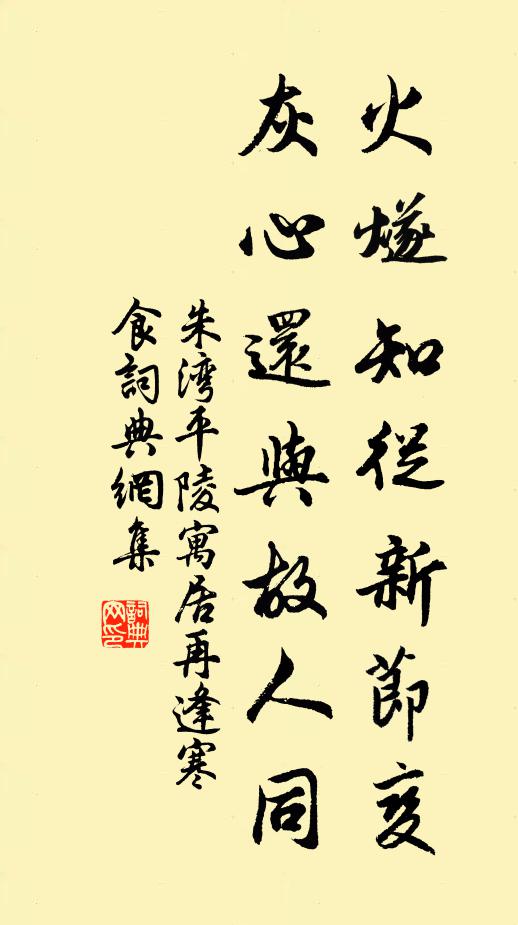 火燧知從新節變
灰心還與故人同
朱湾平陵寓居再逢寒
食詞典網集
詞典
网印